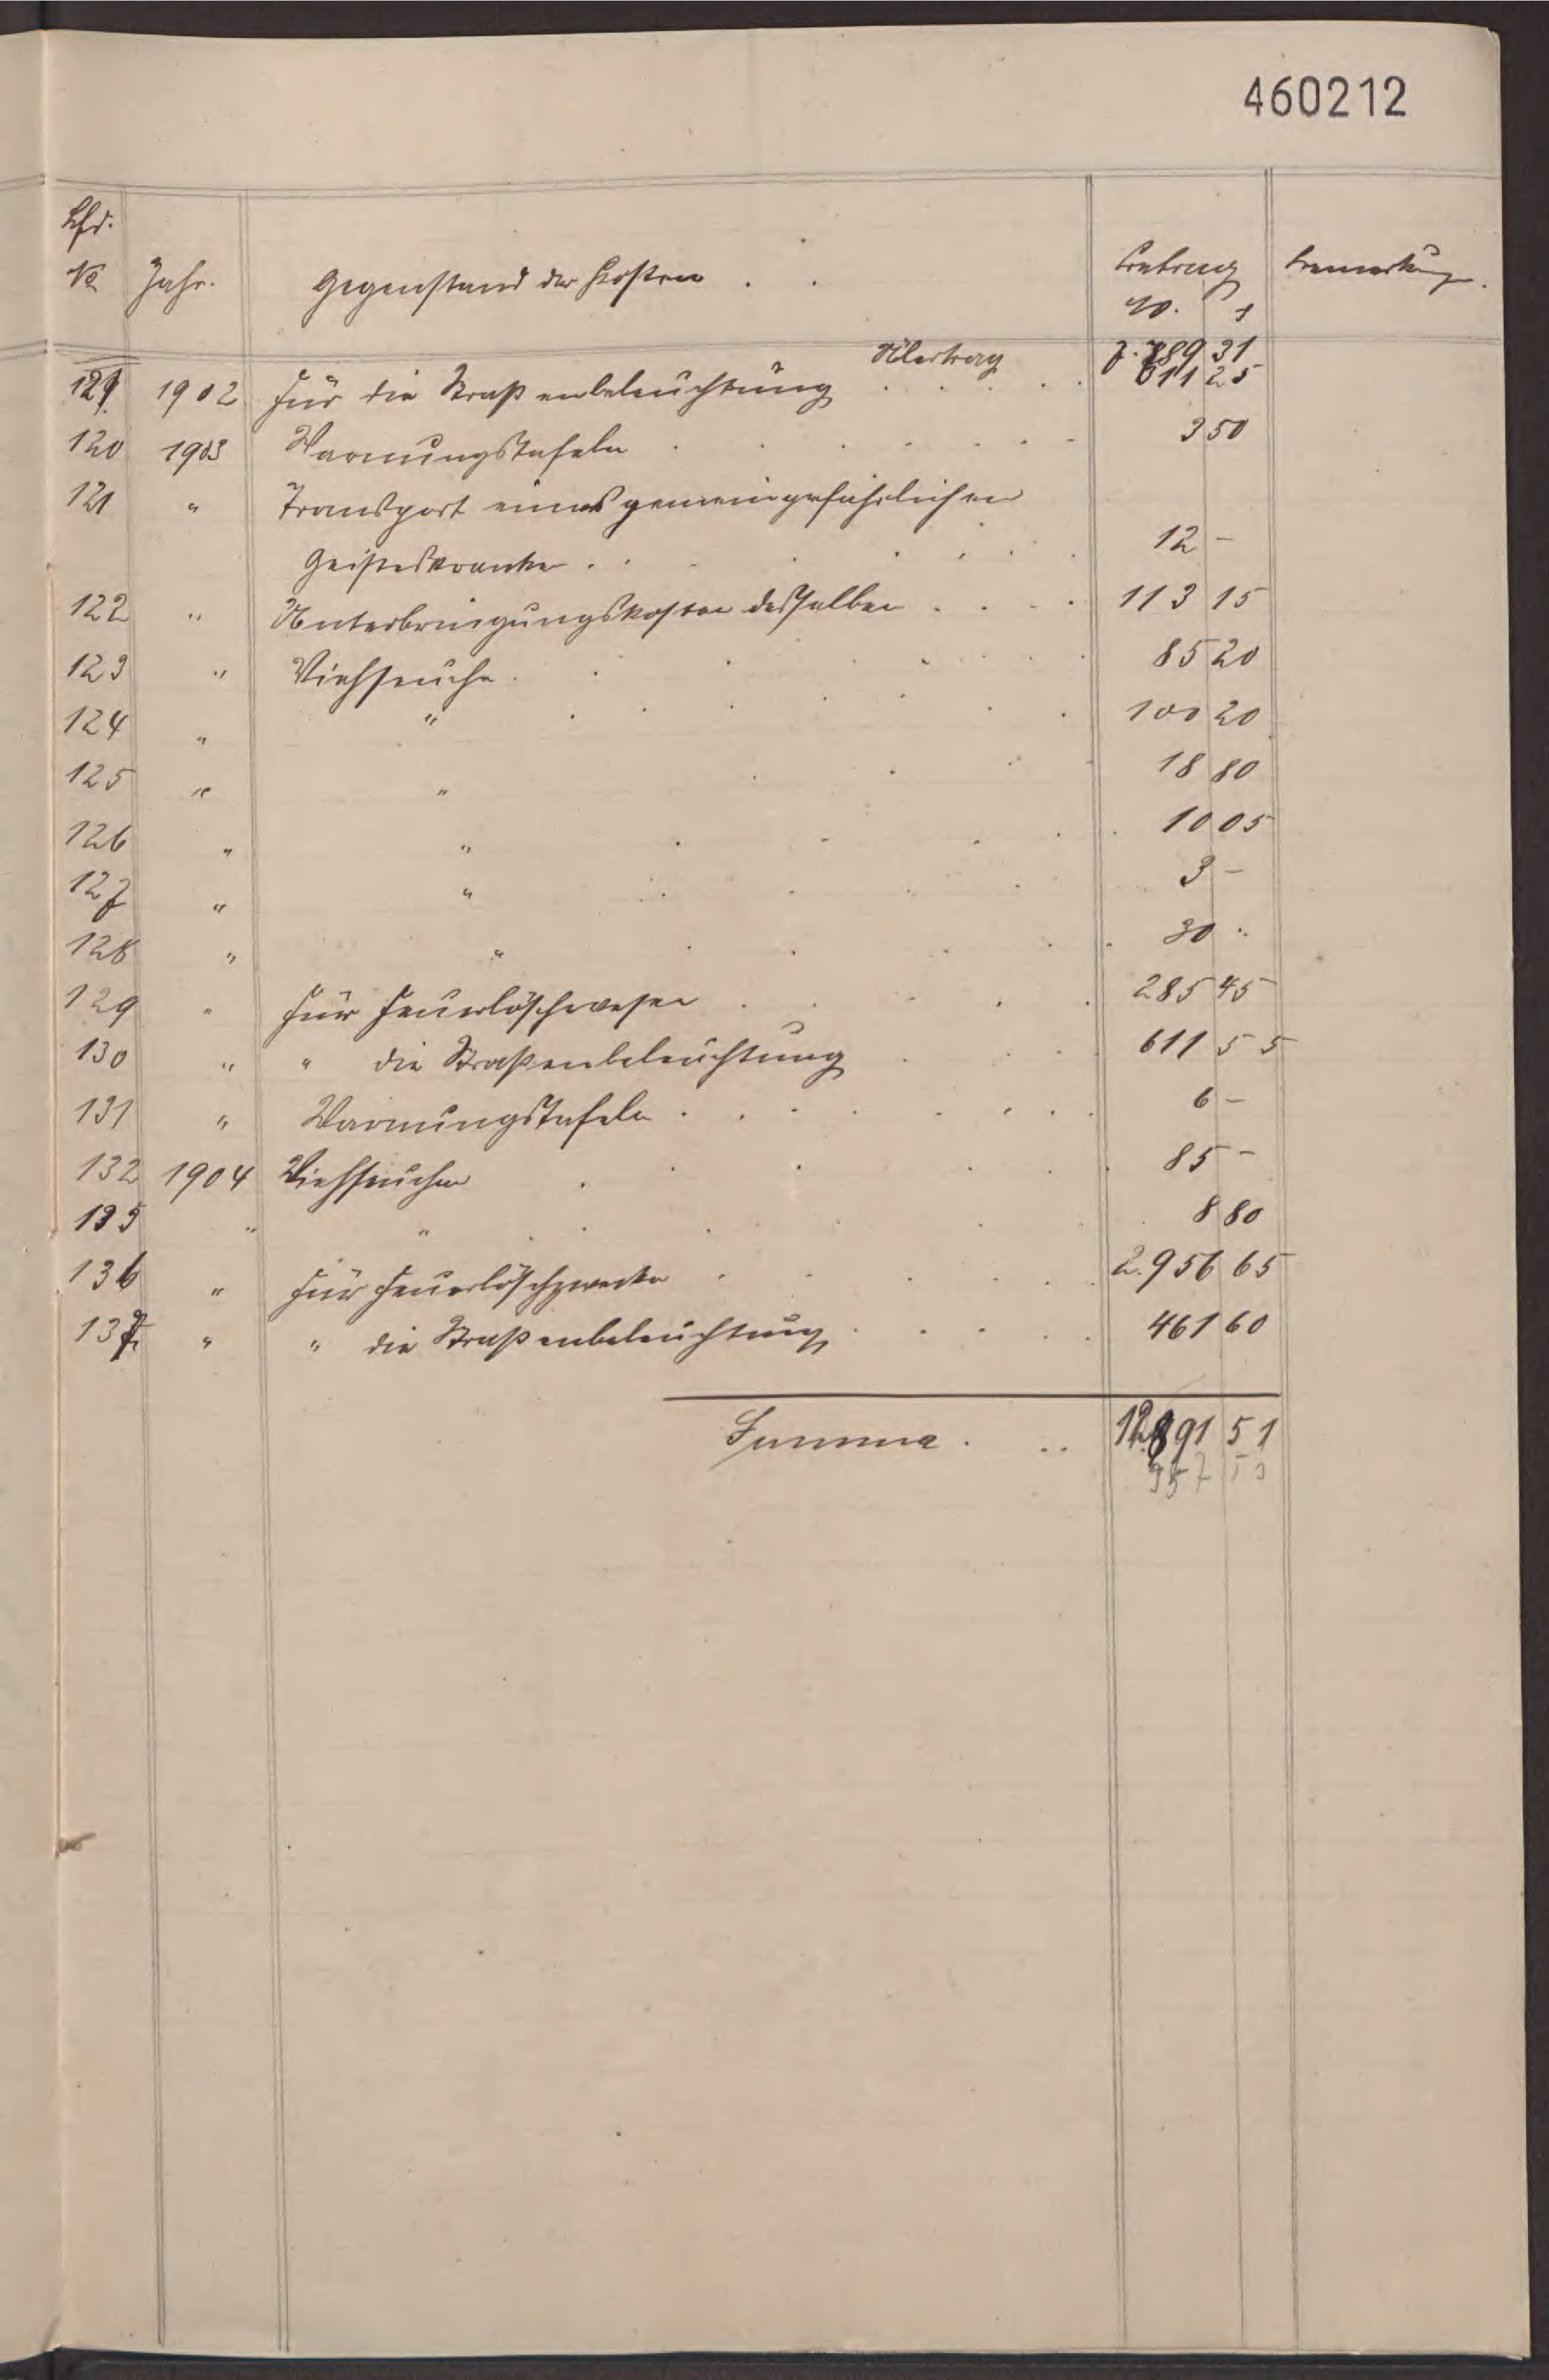 460212
Lfd.
No Jahr. Gegenstand der Kosten . . Betrag Bemerkung.
M. ₰
Übertrag 7.489 31
1902 Für die Straßenbeleuchtung . . . . . 611 25
120 1903 Warnungstafeln . . . . . . . 3 50
121 " Transport eines gemeingefährlichen
Geisteskranken . . . . . . . 12 –
122 " Unterbringungskosten desselben . . . . 113 15
123 " Viehseuche . . . . . . . 85 20
124 " " . . . . . . . 100 20
125 " " . . . . 18 80
126 " " . . . . . 10 05
127 " " . . . . . 3 –
128 " " . . . . . 30 "
129 " Für Feuerlöschwesen . . . . . 285 45
130 " " die Straßenbeleuchtung . . . . 611 55
131 " Warnungstafeln . . . . . . . . 6 –
132 1904 Viehseuchen . . . . . . 85 –
135 " " . . . . . 8 80
136 " Für Feuerlöschzwecke . . . . . 2.956 65
137 " " die Straßenbeleuchtung . . . . . 461 60
Summa . . . 12.891 51